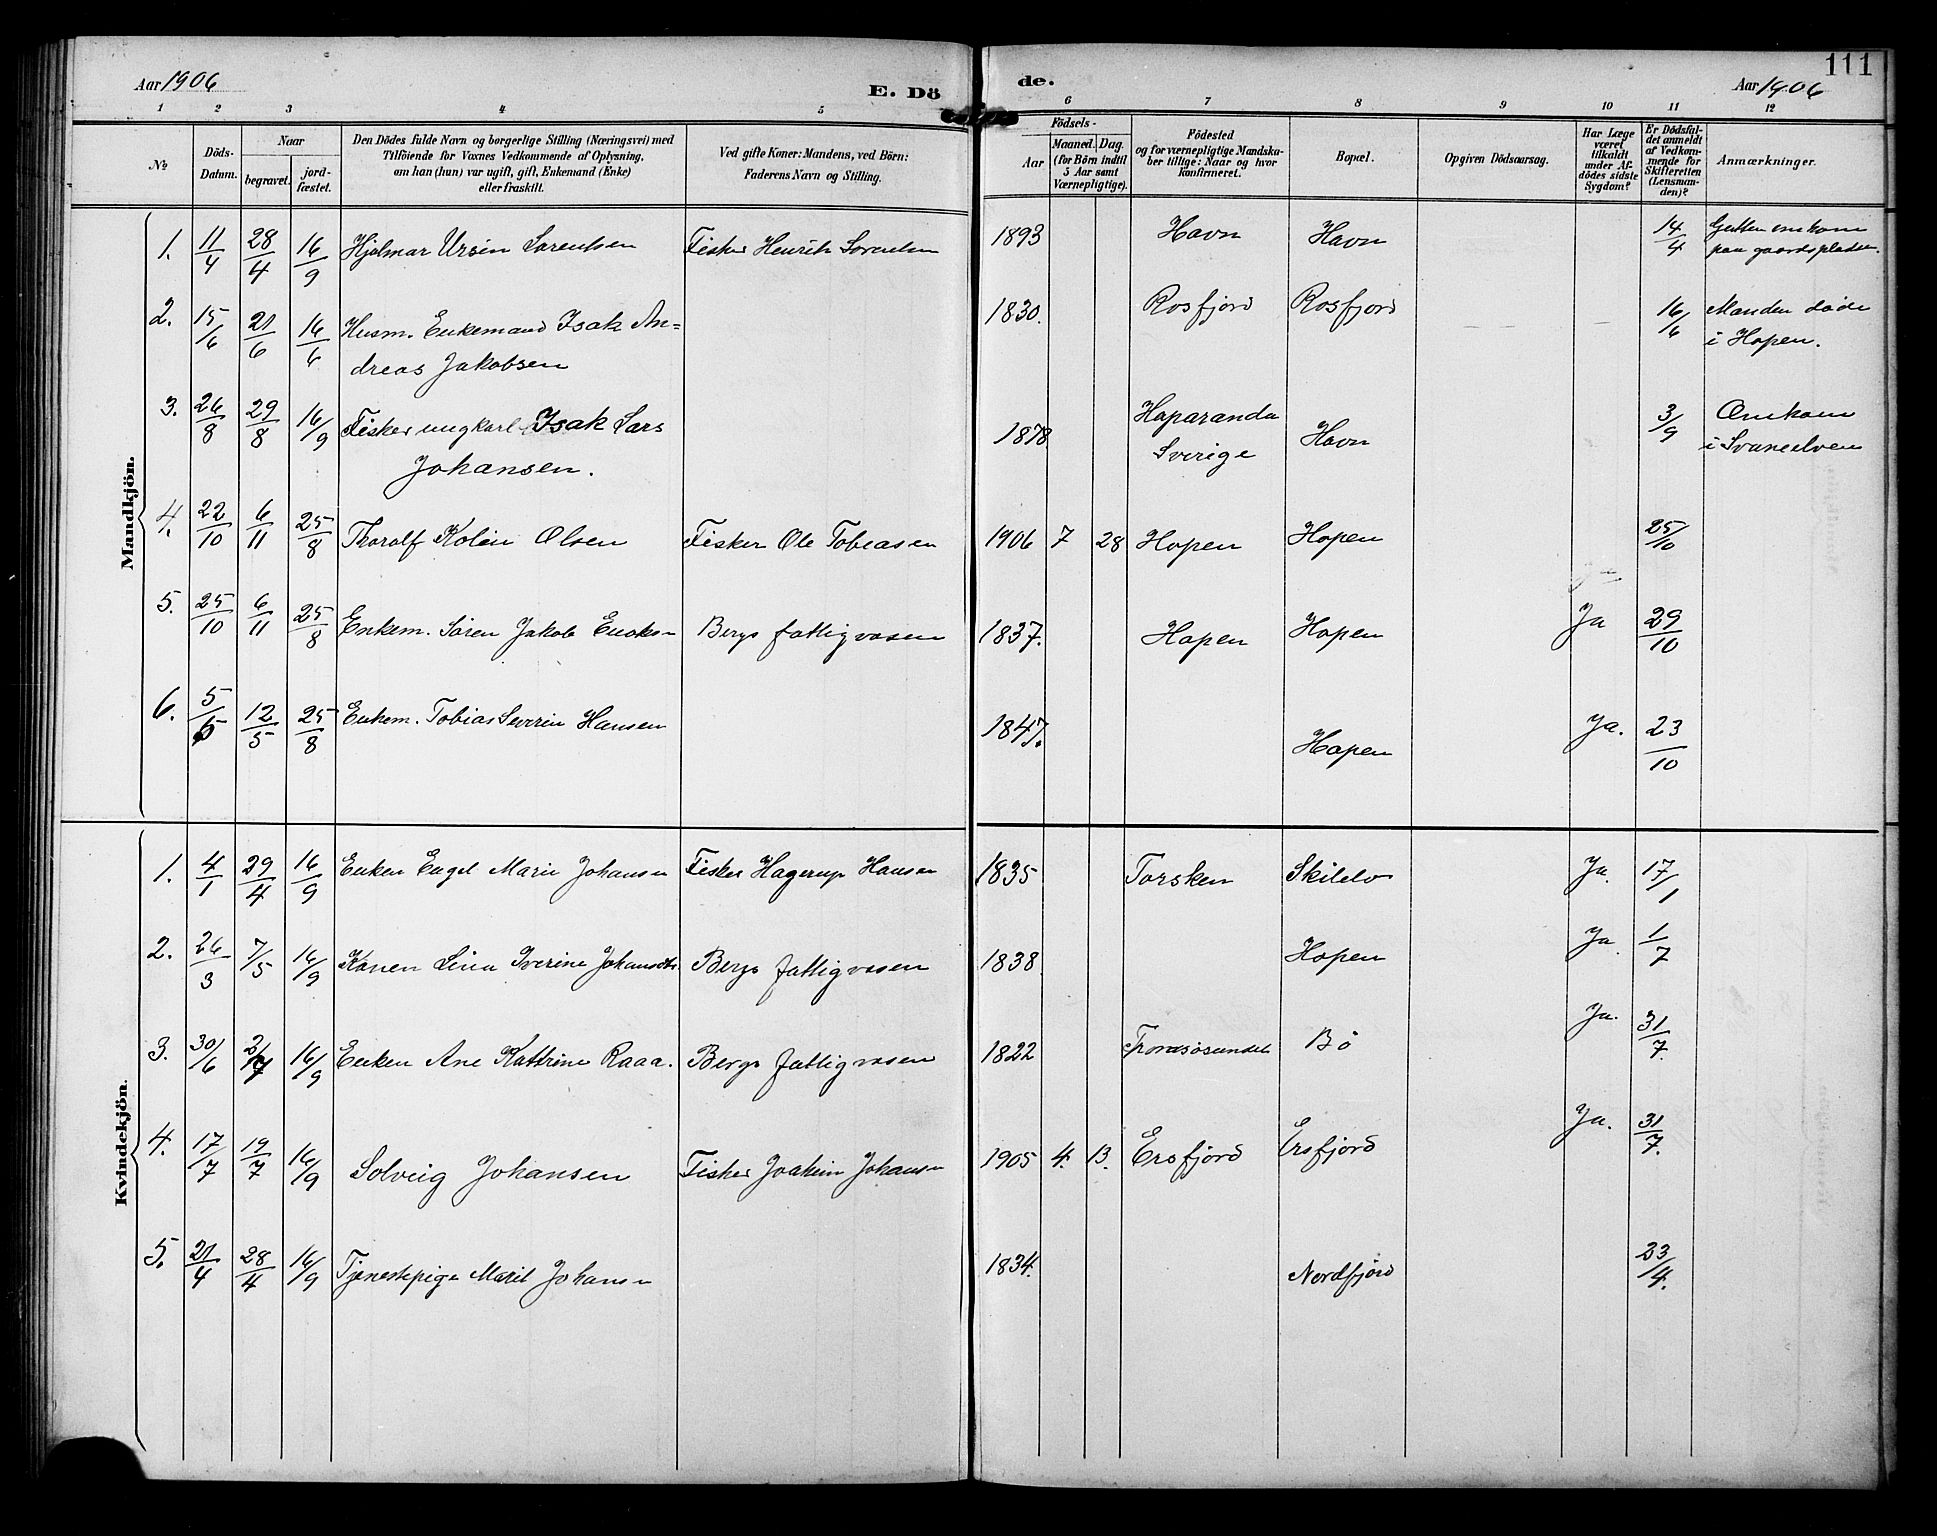 111
Aar 1906 E. Dö de. Aar 1906
1 2 3 4 5 6 7 8 9 10 11 12
No Döds-Datum. Naar begravet. jordfæstet. Den Dödes fulde Navn og borgerlige Stilling (Næringsvei) med Tilföiende for Voxnes Vedkommende af Oplysning, om han (hun) var ugift, gift, Enkemand (Enke) eller fraskilt. Ved gifte Koner: Mandens, ved Börn: Faderens Navn og Stilling. Födsels- Aar Maaned. Dag. (for Börn indtil 5 Aar samt Værnepligtige). Födested og for værnepligtige Mandskaber tillige: Naar og hvor konfirmeret. Bopæl. Opgiven Dödsaarsag. Har Læge været tilkaldt under Afdödes sidste Sygdom? Er Dödsfaldet anmeldt af Vedkommende for Skifteretten (Lensmanden)? Anmærkninger.
Mandkjön.
1. 11/4 28/4 16/9 Hjalmar Ursin Sørensen Fisker Henrik Sørensen 1893 Havn Havn 14/4 Gutten omkom
paa gaardspladsen.
2. 15/6 21/6 16/6 Husm. Enkemand Isak An= 1830. Rosfjord Rosfjord 16/6 Manden døde
dreas Jakobsen i Hopen.
3. 26/8 29/8 16/9 Fisker ungkarl Isak Lars 1878 Haparanda Havn 3/9 Omkom
Johansen. Sverige i Svaneelven
4. 22/10 6/11 25/8 Thoralf Kolin Olsen Fisker Ole Tobiasen 1906 7 28 Hopen Hopen 25/10
5. 25/10 6/11 25/8 Enkem. Søren Jakob Enoks~ Bergs fattigvæsen 1837. Hopen Hopen Ja 29/10
6. 5/5 12/5 25/8 Enkem. Tobias Severin Hansen 1847. Hopen Ja. 23/10
Kvindekjön.
1. 4/1 29/4 16/9 Enken Engel Marie Johansen Fisker Hagerup Hansen 1835 Torsken Ja. 17/1
2. 26/3 7/5 16/9 Konen Lina Iverine Johansdtr. Bergs fattigvæsen 1838 Hopen Ja 1/7
3. 30/6 2/7 16/9 Enken Ane Kathrine Raaa. Bergs fattigvæsen 1822 Tromsøsundet Bø Ja. 31/7.
4. 17/7 19/7 16/9 Solveig Johansen Fisker Joakim Johansen 1905 4. 13. Ersfjord Ersfjord Ja. 31/7.
5. 21/4 28/4 16/9 Tjenestepige Marit Johansen 1834. Nordfjord 23/4.